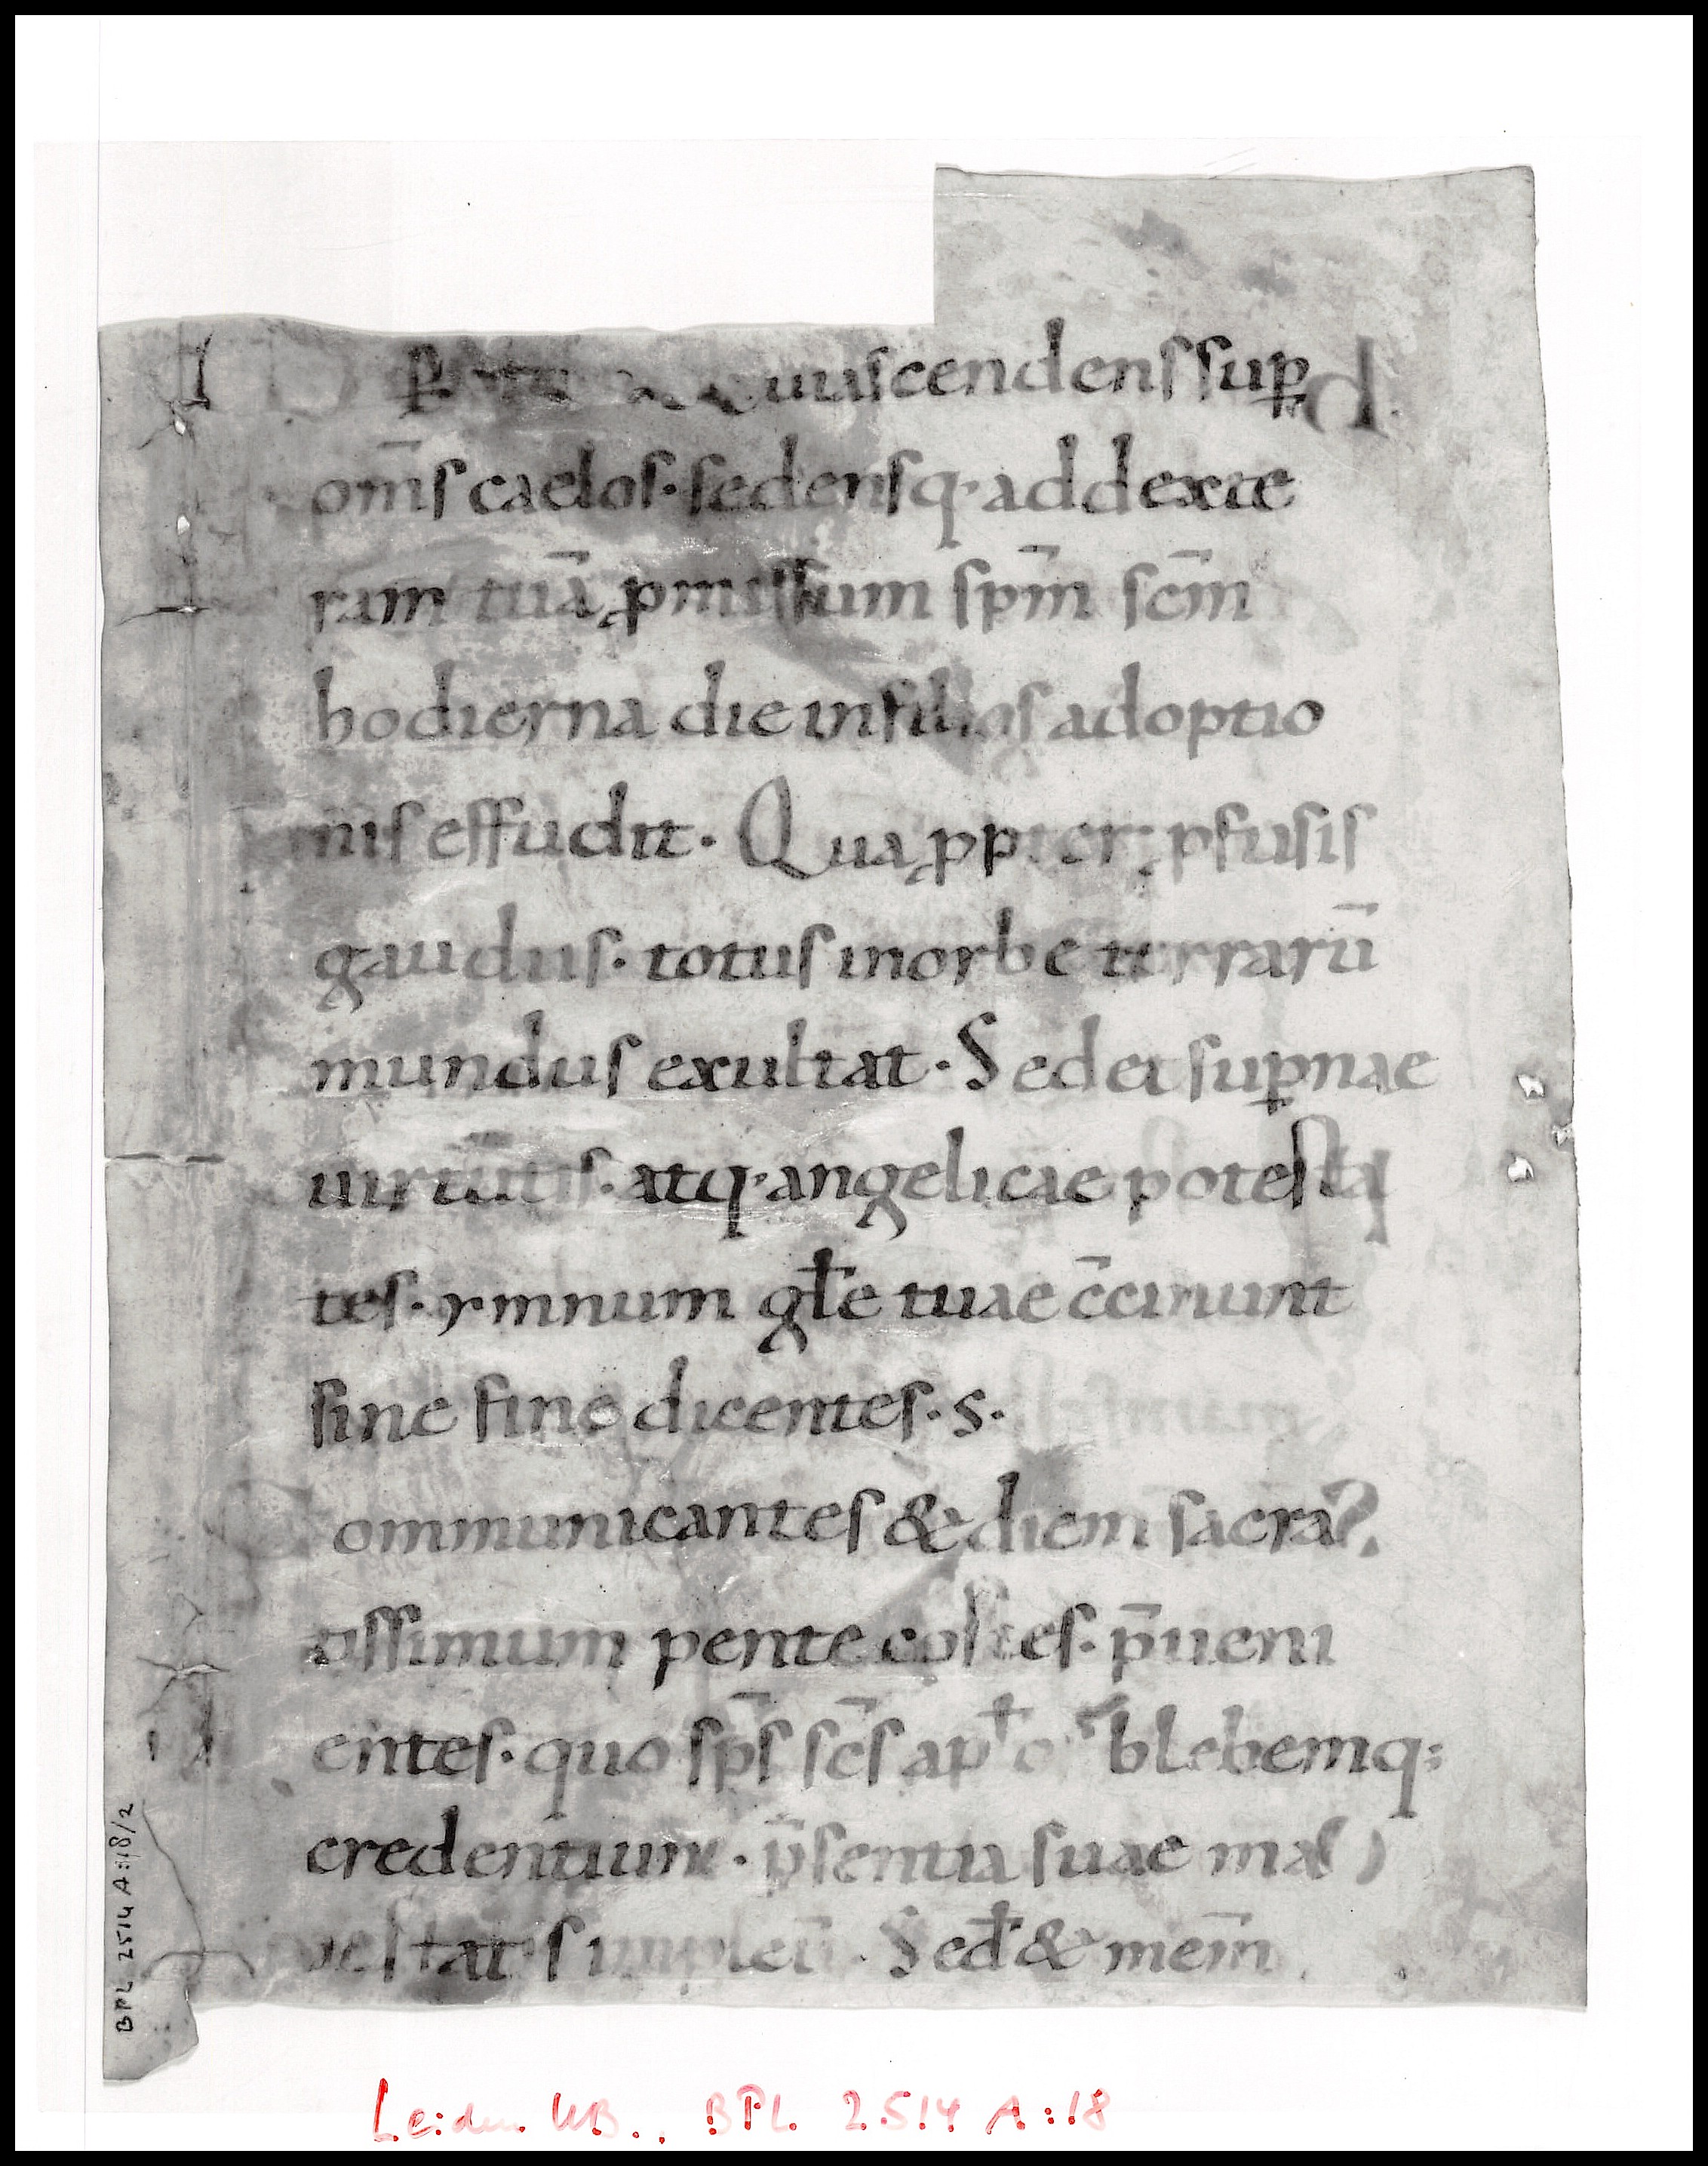 uiascendens sup
om̄s caelos· sedensq· ad dexte
ram tuā ꝓmissum spm̄ scm̄
hodierna die in filios adoptio
nis effudit· Quaꝓpter ꝓfusis
gaudiis· totus in orbe terrarū
mundus exultat· Sed et suꝑnae
uirtutis· atq· angelicae potesta
tes· ymnum głe tuae c̄cinunt
sine fine dicentes· s·
ommunicantes & diem sacra
tissimum pentecostes· p̄ueni
entes· quo sp̄s sc̄s blebemq;
credentium· p̄sentia suae ma
iestatis impleuī· Sed & mem̄
BPL 2514 A:18/2
Leiden UB., BPL 2514 A:18